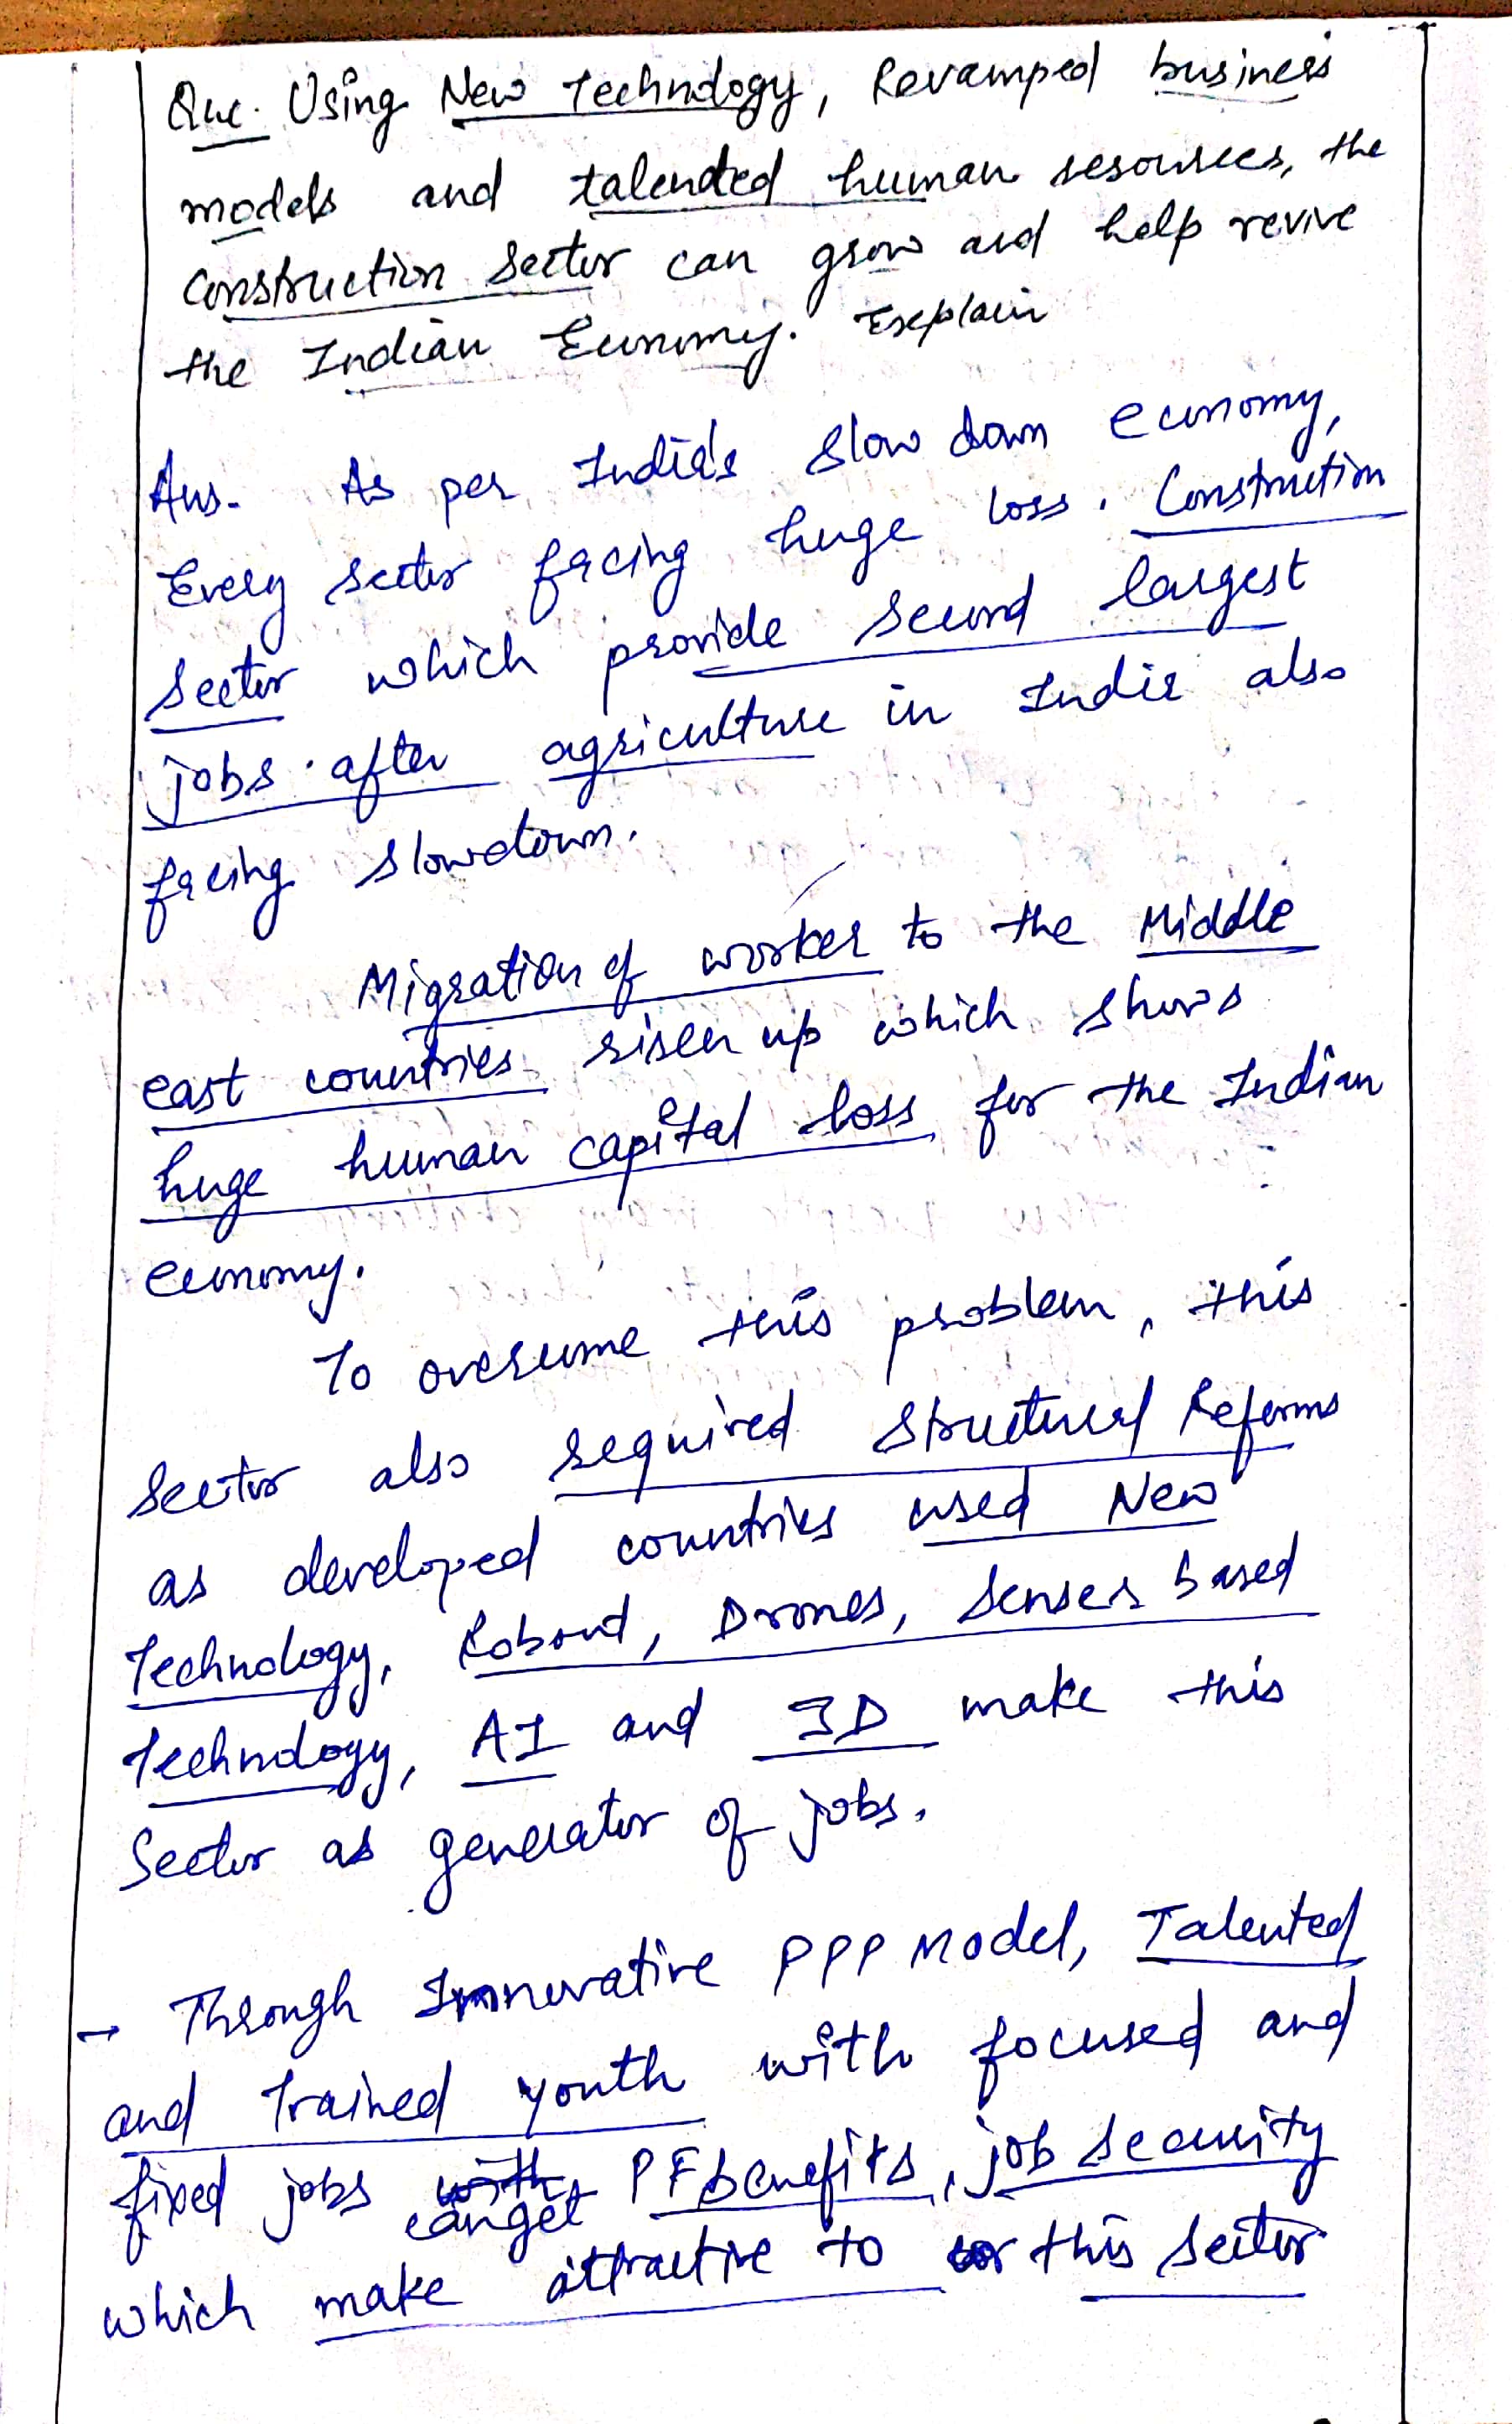 Que. Using New Technology, Revamped business
models and talended human resources, the
Construction Sector can grow and help revive
the Indian Economy. Explain
Ans. As per India's slow down economy,
Every sector facing huge loss. Construction
Sector which provide second largest
jobs after agriculture in India also
facing slowdown.
Migration of worker to the Middle
east countries risen up which shows
huge human capital loss for the Indian
economy.
To overcome this problem, this
Sector also required Structural Reforms
as developed countries used New
Technology, Robout, Drones, Senser based
Technology, AI and 3D make this
Sector as generator of jobs.
→ Through Innovative PPP Model, Talented
and Trained youth with focused and
fixed jobs can get PF benefits, job security
which make attractive to this Sector